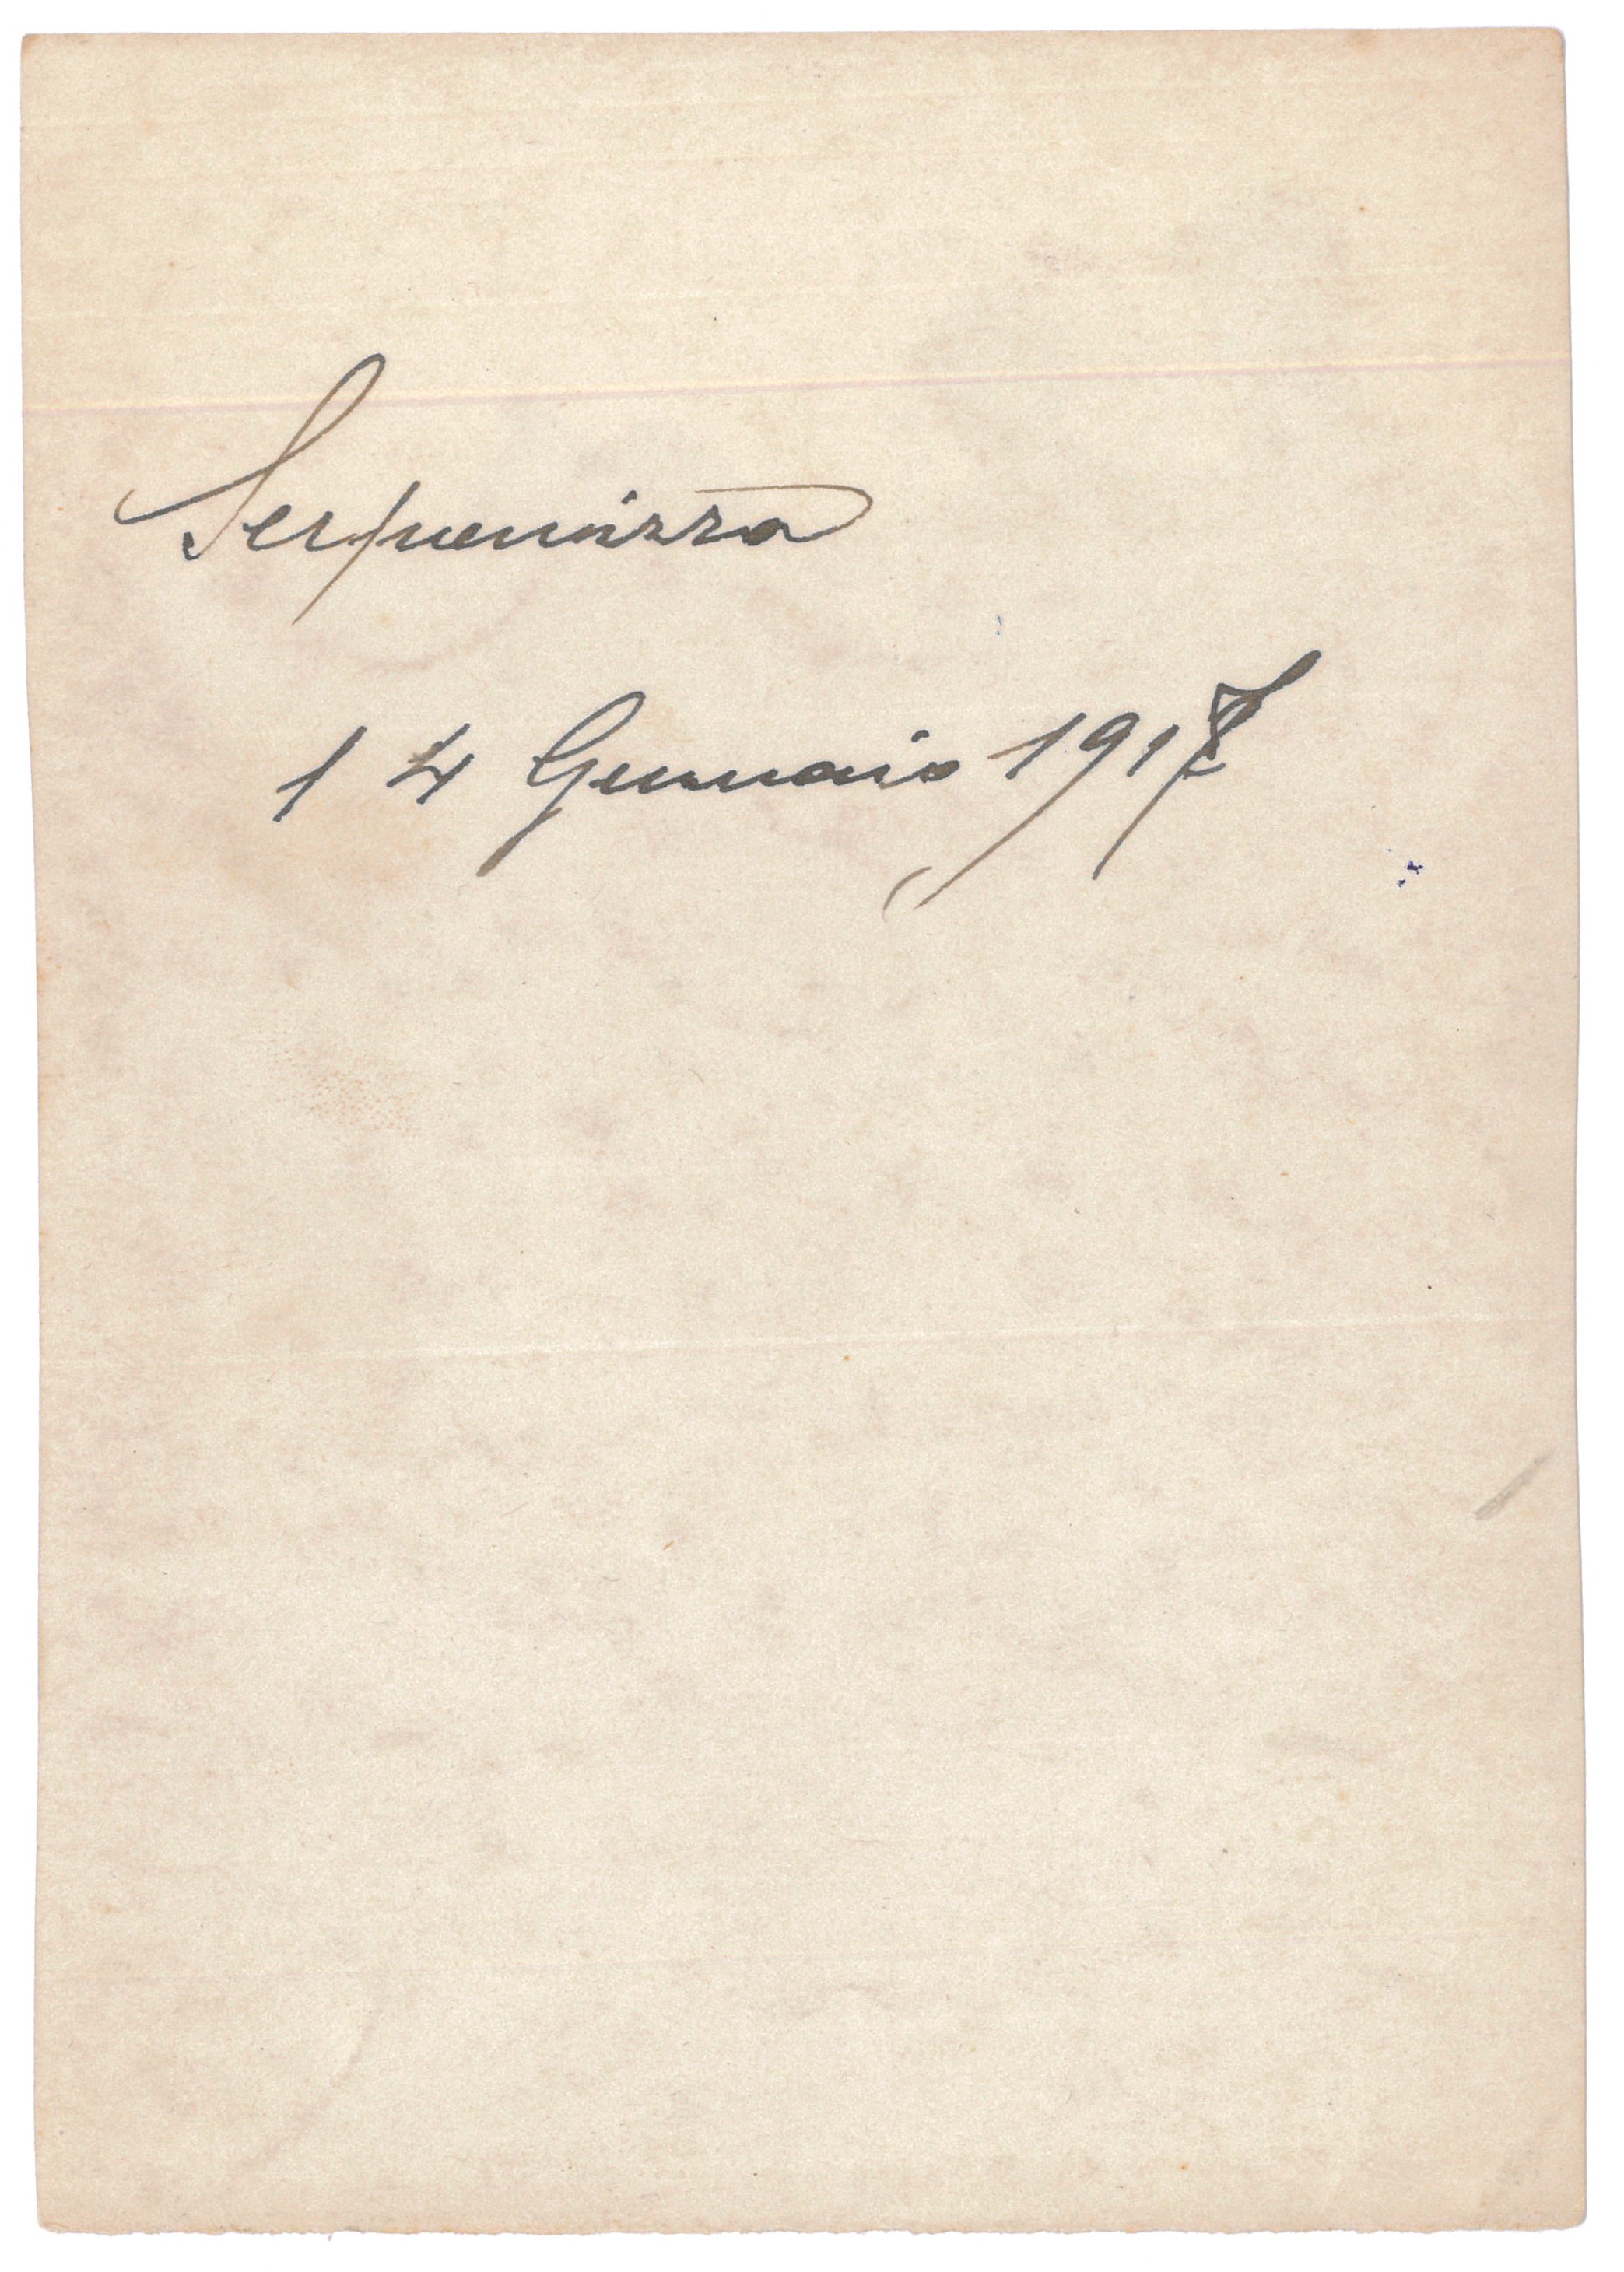 Serpenizza
14 Gennaio 1917